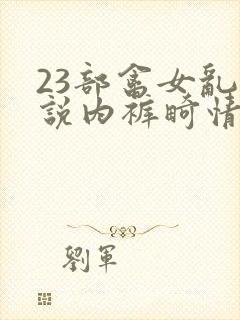 23部畜女亂
説内裤畸情
劉軍